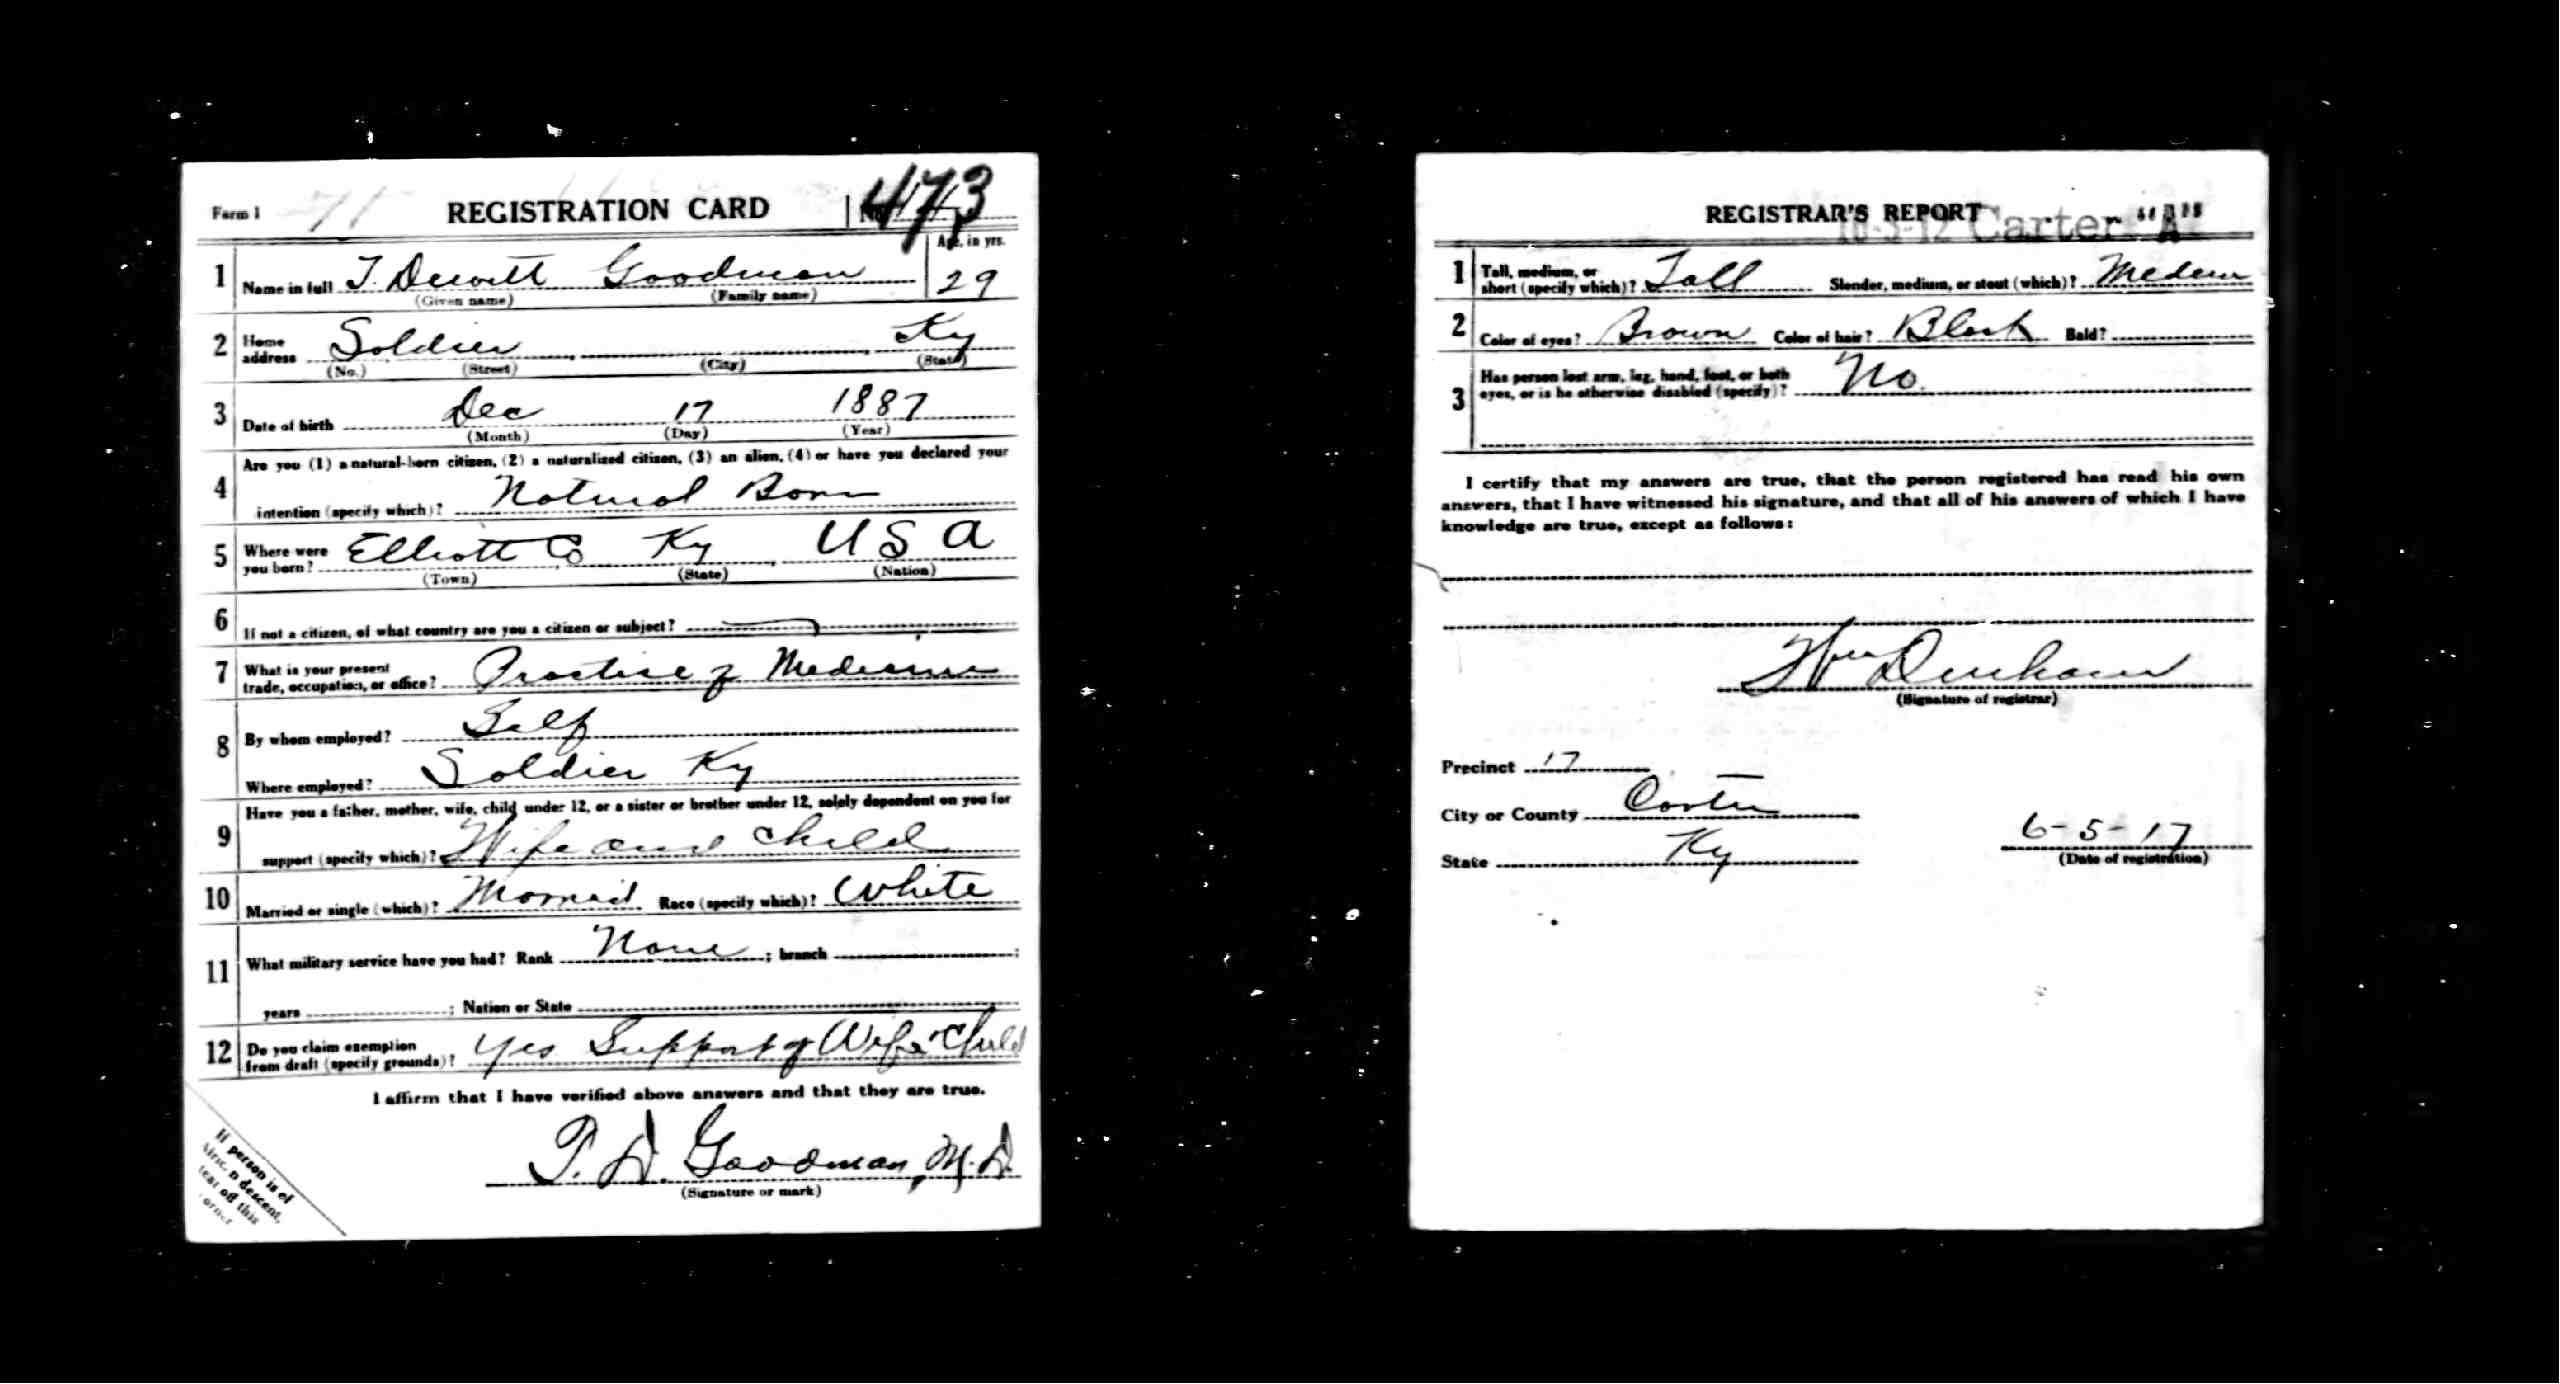 Form 1 REGISTRATION CARD No. 473
Age, in yrs.
1 Name in full T. Dewitt Goodman 29
(Given name) (Family name)
2 Home address Soldier Ky
(No.) (Street) (City) (State)
3 Date of birth Dec 17 1887
(Month) (Day) (Year)
Are you (1) a natural-born citizen, (2) a naturalized citizen, (3) an alien, (4) or have you declared your
4 intention (specify which)? Natural Born
5 Where were you born? Elliott Co Ky USA
(Town) (State) (Nation)
6 If not a citizen, of what country are you a citizen or subject?
7 What is your present trade, occupation, or office? Practice of Medicine
8 By whom employed? Self
Where employed? Soldier Ky
Have you a father, mother, wife, child under 12, or a sister or brother under 12, solely dependent on you for
9 support (specify which)? Wife and child
10 Married or single (which)? Married Race (specify which)? White
11 What military service have you had? Rank None ; branch ;
years ; Nation or State
12 Do you claim exemption from draft (specify grounds)? Yes Support of Wife & Child
I affirm that I have verified above answers and that they are true.
T. D. Goodman, M.D.
(Signature or mark)
If person is of
descent,
tear off this
corner
REGISTRAR'S REPORT
Carter "A"
1 Tall, medium, or short (specify which)? Tall Slender, medium, or stout (which)? Medium
2 Color of eyes? Brown Color of hair? Black Bald?
3 Has person lost arm, leg, hand, foot, or both eyes, or is he otherwise disabled (specify)? No.
I certify that my answers are true, that the person registered has read his own
answers, that I have witnessed his signature, and that all of his answers of which I have
knowledge are true, except as follows:
Wm Denham
(Signature of registrar)
Precinct 17
City or County Carter
State Ky
6-5-17
(Date of registration)